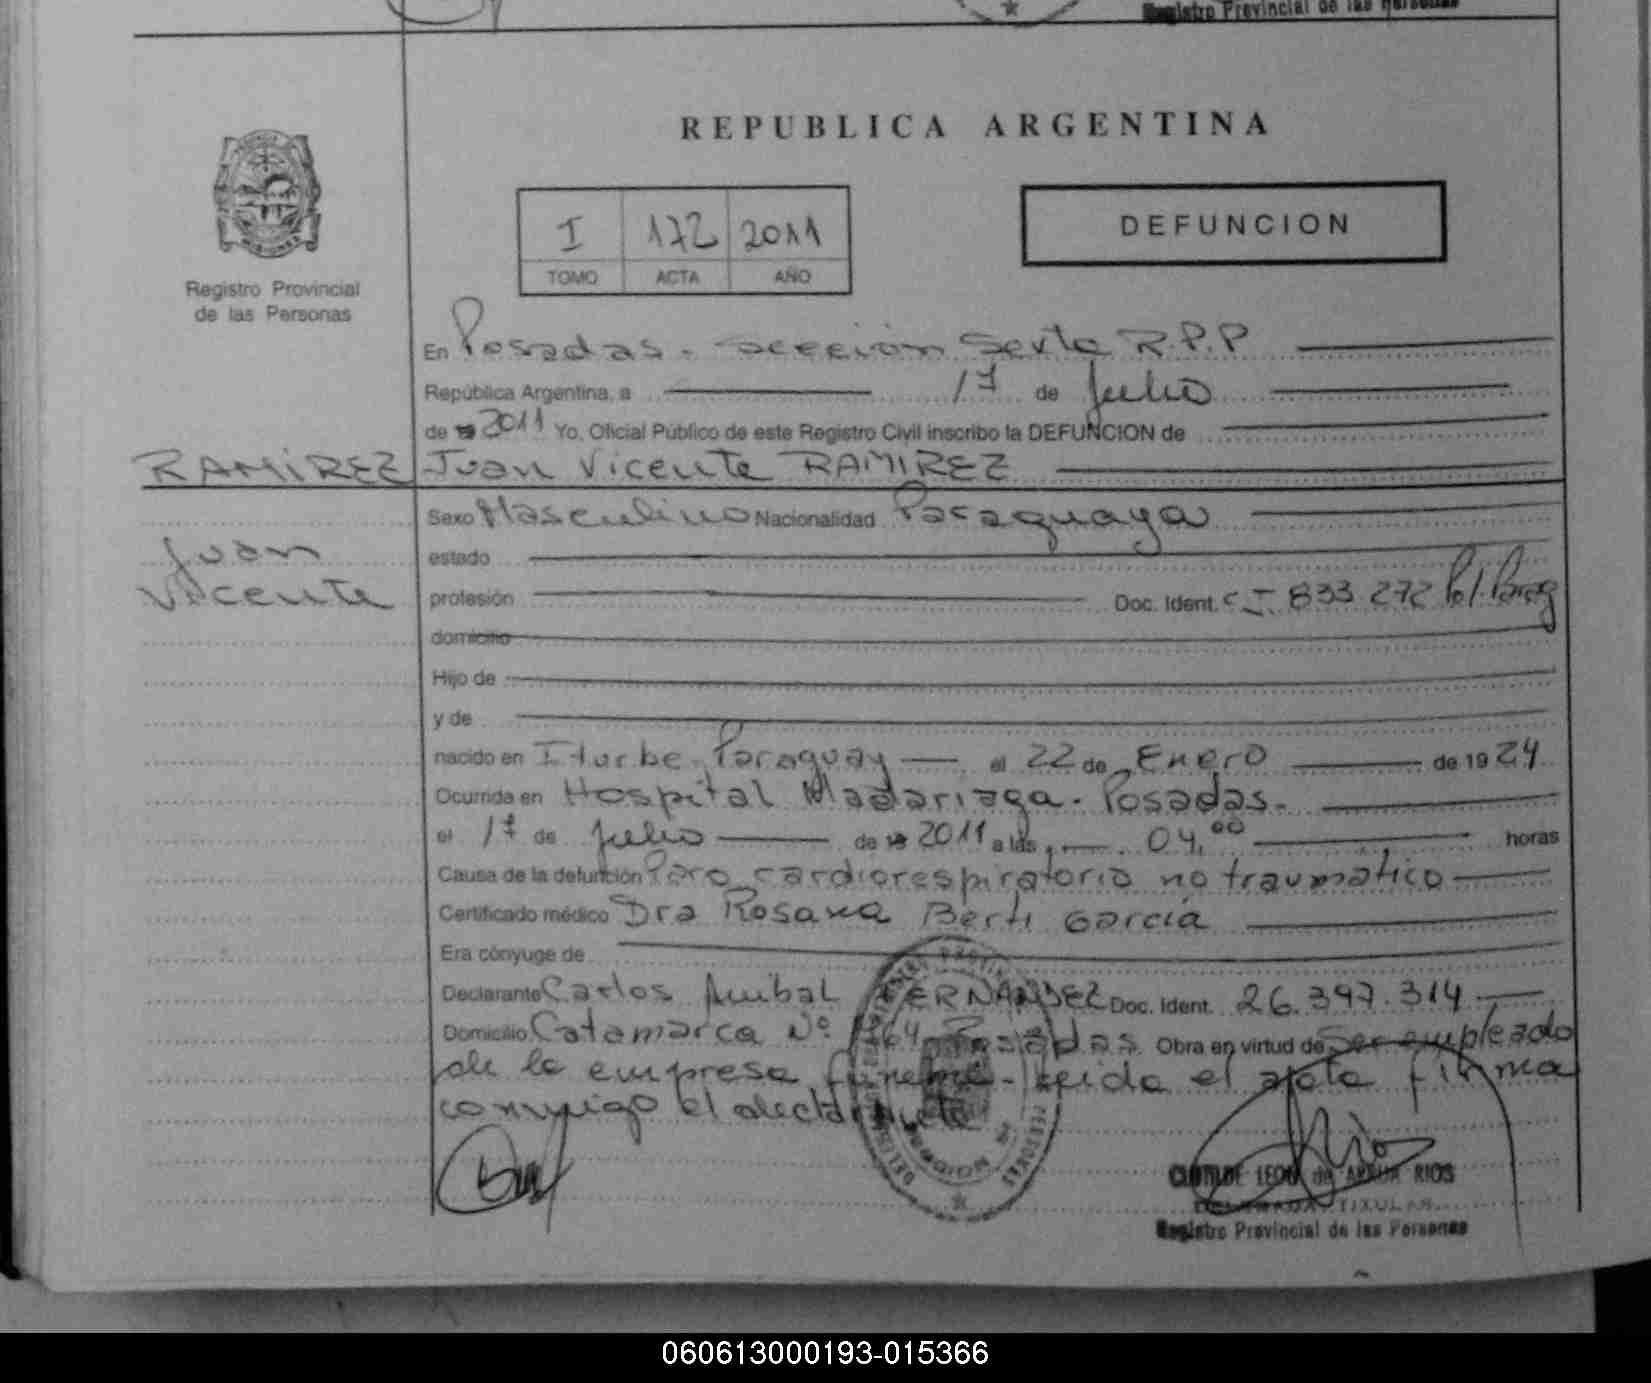 Registro Provincial de las Personas
REPUBLICA ARGENTINA
I 172 2011
TOMO ACTA AÑO
DEFUNCION
Registro Provincial
de las Personas
En Posadas - Sección Sexta R.P.P
República Argentina, a 17 de Julio
de 19 2011 Yo, Oficial Público de este Registro Civil inscribo la DEFUNCION de
RAMIREZ Juan Vicente RAMIREZ
Sexo Masculino Nacionalidad Paraguaya
Juan
estado
Vicente
profesión Doc. Ident. CI 833.272 Pol. Parag
domicilio
Hijo de
y de
nacido en Iturbe - Paraguay el 22 de Enero de 1924
Ocurrida en Hospital Madariaga - Posadas -
el 17 de Julio de 19 2011 a las 04,00 horas
Causa de la defunción Paro cardiorespiratorio no traumático
Certificado médico Dra Rosana Berti Garcia
Era cónyuge de
Declarante Carlos Anibal FERNANDEZ Doc. Ident. 26.397.314
Domicilio Catamarca Nº Posadas Obra en virtud de Ser empleado
de la empresa funebre - leida el acta firma
conmigo el declarante
CLOTILDE LEON de ARAUJO RIOS
DELEGADA TITULAR
Registro Provincial de las Personas
060613000193-015366